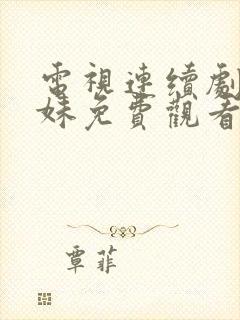 電視連續劇
妹免費觀看
覃菲